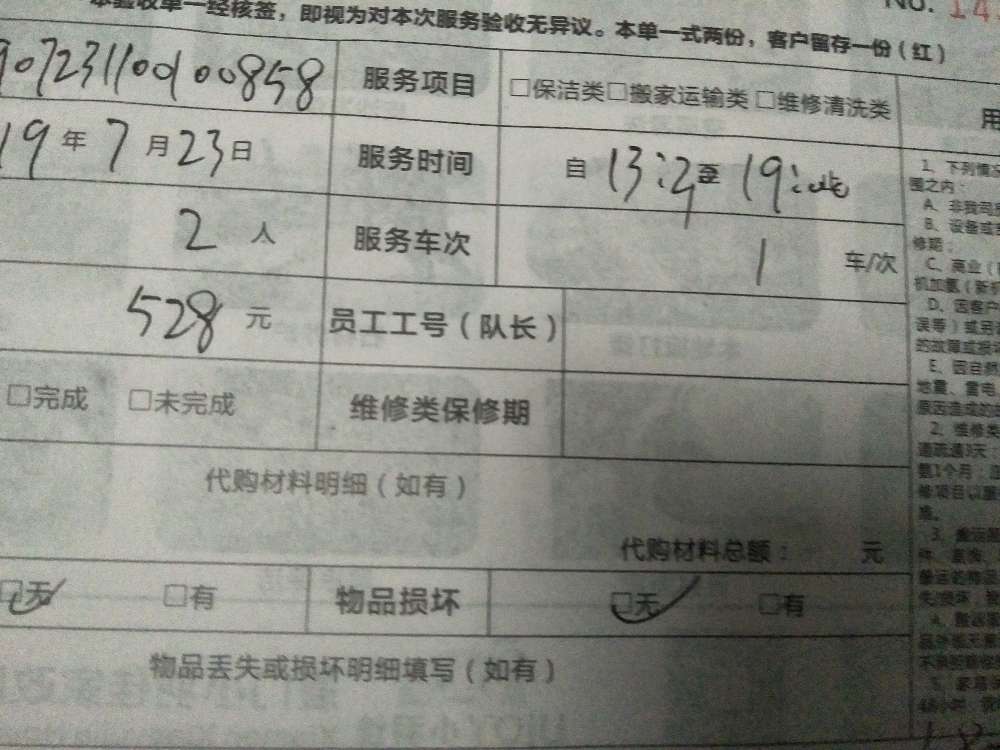 本验收单一经核签，即视为对本次服务验收无异议。本单一式两份，客户留存一份（红）
No. 14
907231100100858 服务项目 □保洁类□搬家运输类 □维修清洗类
19 年 7 月 23 日 服务时间 自 13: 至 19:
2 人 服务车次 1 车/次
528 元 员工工号（队长）
□完成 □未完成 维修类保修期
代购材料明细（如有）
代购材料总额： 元
□无 □有 物品损坏 □无 □有
物品丢失或损坏明细填写（如有）
用
1、下列情况
围之内：
A、非我司
B、设备或
修期；
C、商业（
机加氟（新机
D、因客户
误等）或
的故障或损
E、因自然
地震、雷电
原因造成的
2、维修类
通疏通3天；
氨1个月；
修项目以
准。
3、搬运